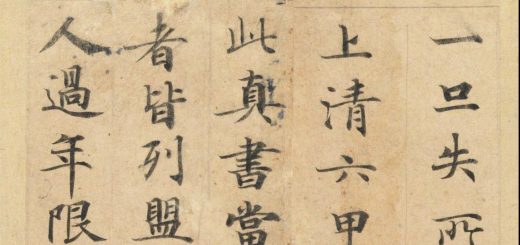 一旦失所
上清六甲
此真書當
者皆列盟
人過年限